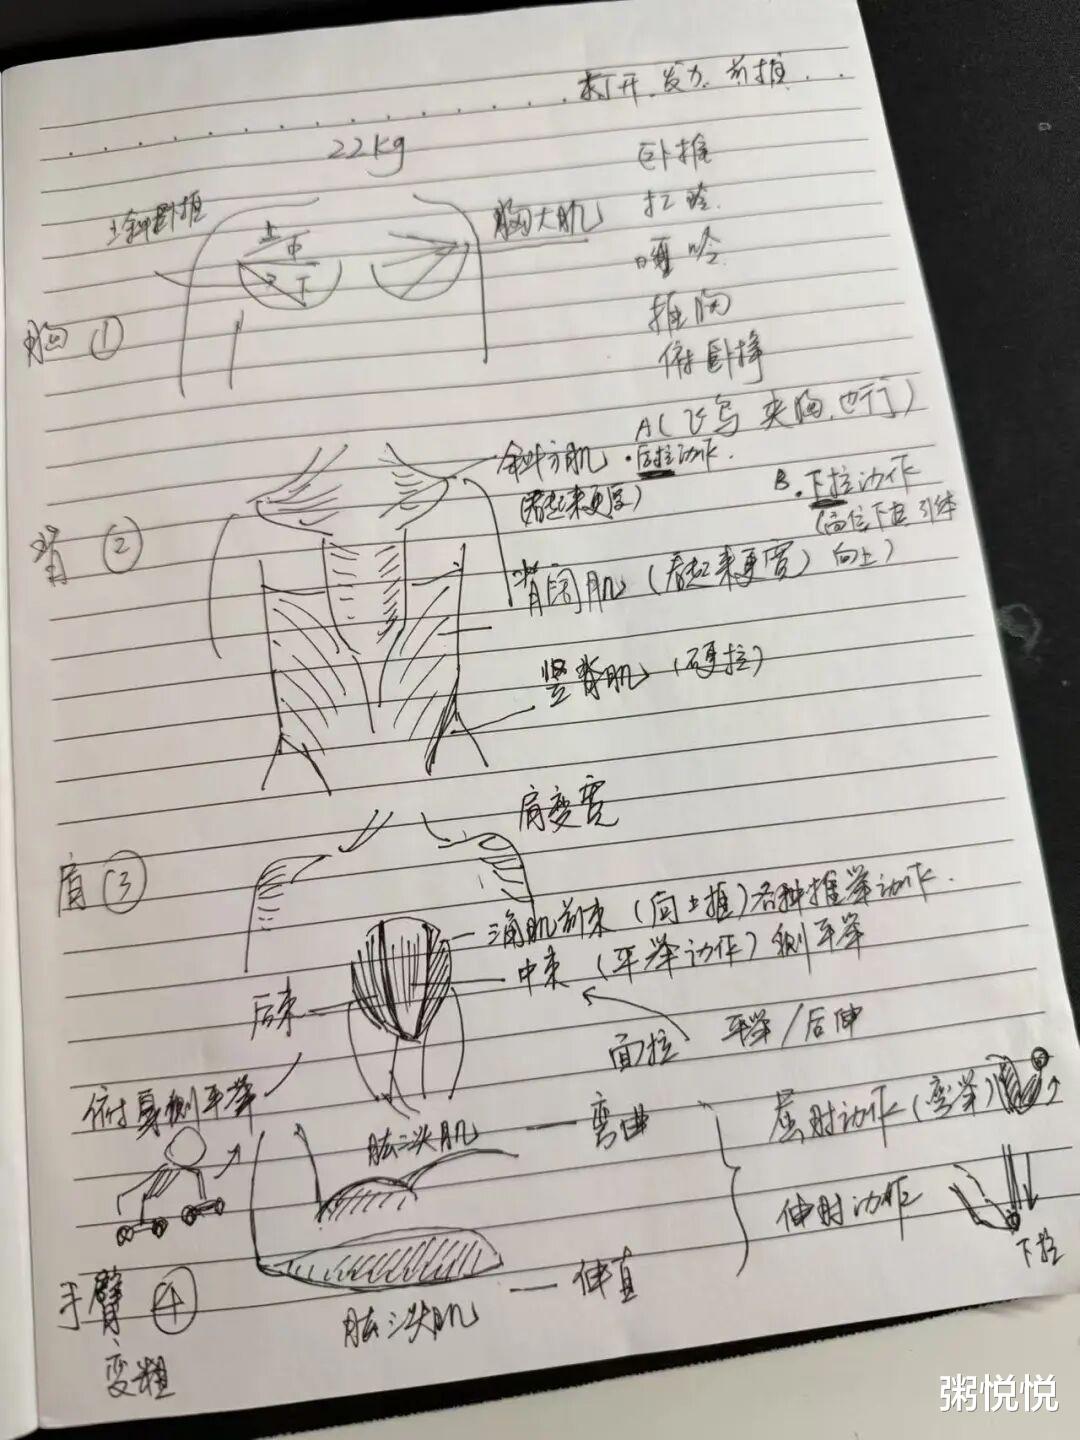 打开.发力.前推...
22kg
卧推
上斜卧推
胸大肌
杠铃.
上
中
下
哑铃.
推胸
胸 ①
俯卧撑
A(飞鸟 夹胸.也行)
斜方肌 · 后拉动作.
(看起来更厚)
B. 下拉动作
(高位下拉 引体
向上)
背 ②
背阔肌 (看起来更宽)
竖脊肌 (硬拉)
肩变宽
肩 ③
三角肌前束 (向上推) 各种推举动作.
中束 (平举动作) 侧平举
后束
面拉 平举/后伸
俯身侧平举
肱二头肌 — 弯曲
屈肘动作(弯举)
伸肘动作
下拉
手臂 ④
肱三头肌 — 伸直
变粗
粥悦悦